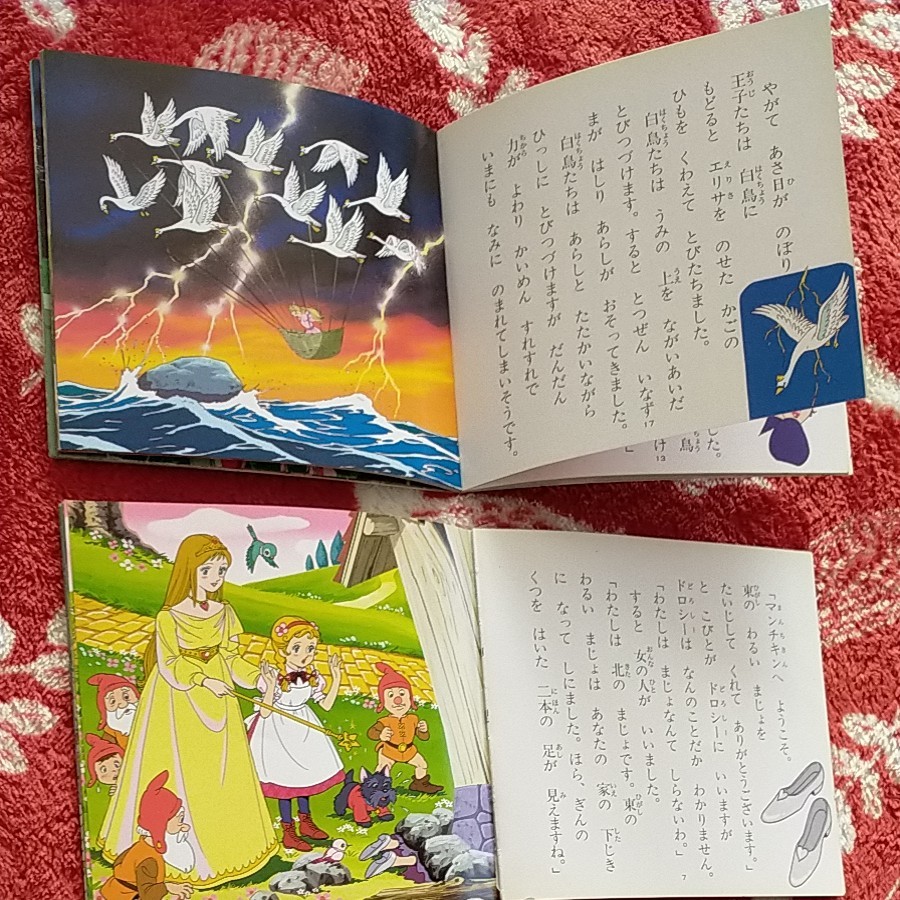 やがて あさ日が のぼり
王子たちは 白鳥に
もどると エリサを のせた かごの
ひもを くわえて とびたちました。
白鳥たちは うみの 上を ながいあいだ
とびつづけます。すると とつぜん いなず
まが はしり あらしが おそってきました。
白鳥たちは あらしと たたかいながら
ひっしに とびつづけますが だんだん
力が よわり かいめん すれすれで
いまにも なみに のまれてしまいそうです。
17
した。
鳥
け
13
「マンチキンへ ようこそ。
東の わるい まじょを
たいじして くれて ありがとうございます。」
と こびとが ドロシーに いいますが
ドロシーは なんのことだか わかりません。
「わたしは まじょなんて しらないわ。」
すると 女の人が いいました。
「わたしは 北の まじょです。東の
わるい まじょは あなたの 家の 下じき
に なって しにました。ほら、ぎんの
くつを はいた 二本の 足が 見えますね。」
7